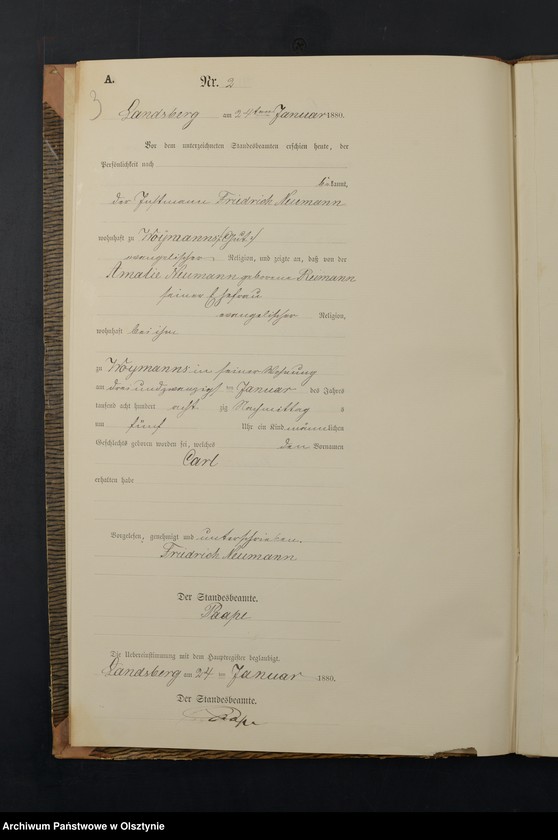 A.
Nr. 2
3
Landsberg am 24ten Januar 1880.
Vor dem unterzeichneten Standesbeamten erschien heute, der
Persönlichkeit nach
bekannt,
der Instmann Friedrich Neumann
wohnhaft zu Woymanns (Gut)
evangelischer Religion, und zeigte an, daß von der
Amalie Neumann geborene Reimann
seiner Ehefrau
evangelischer Religion,
wohnhaft bei ihm
zu Woymanns in seiner Wohnung
am dreiundzwanzigsten Januar des Jahres
tausend acht hundert acht zig Nachmittag s
um fünf Uhr ein Kind männlichen
Geschlechts geboren worden sei, welches den Vornamen
Carl
erhalten habe
Vorgelesen, genehmigt und unterschrieben.
Friedrich Neumann
Der Standesbeamte.
Paape
Die Uebereinstimmung mit dem Hauptregister beglaubigt.
Landsberg am 24 ten Januar 1880.
Der Standesbeamte.
Paape
Archiwum Państwowe w Olsztynie